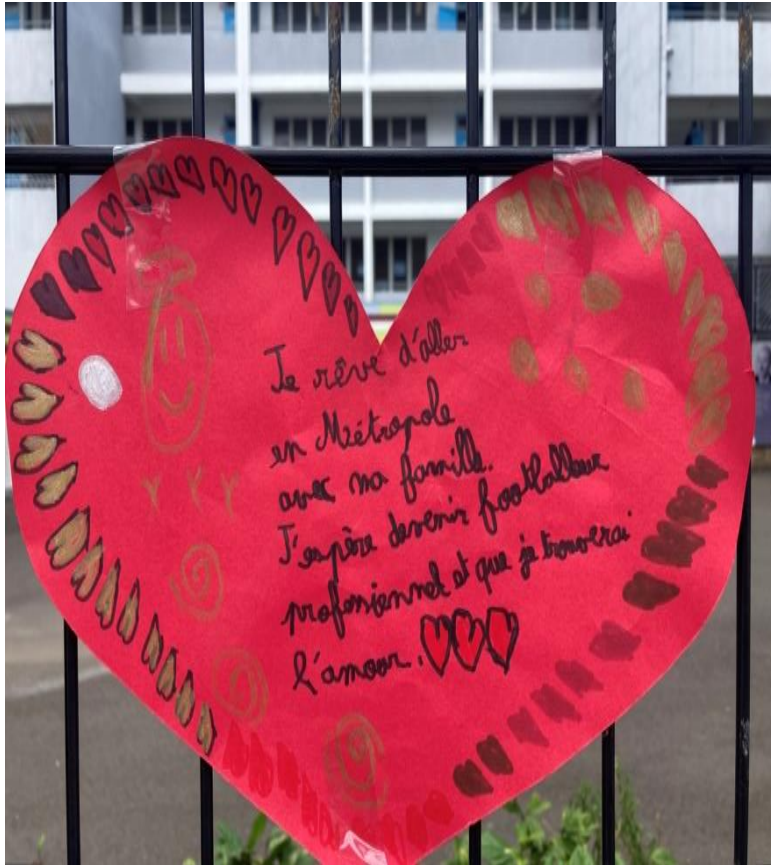 Je rêve d'aller
en Métropole
avec ma famille.
J'espère devenir footballeur
professionnel et que je trouverai
l'amour.